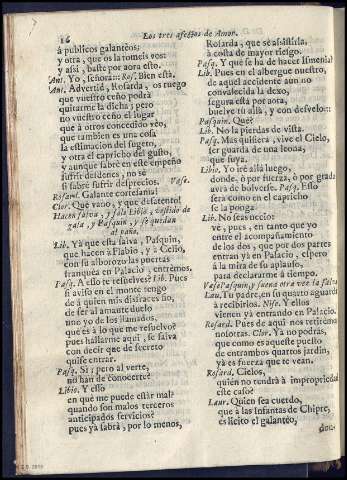 16
Los tres afectos de Amor.
à publicos galantèos;
y otra, que os la tomeis vos:
y assi, baste por aora esto.
Ant. Yo, señora::: Ros. Bien està.
Ant. Advertid, Rosarda, os ruego
que vuestro ceño podrà
quitarme la dicha; pero
no vuestro ceño el lugar
que à otros concedido veo,
que tambien es una cosa
la estimacion del sugeto,
y otra el capricho del gusto,
y aunque sabrè en este empeño
sufrir desdenes, no sè
si sabrè sufrir desprecios. Vase.
Rosard. Galante cortesania!
Clor. Què vano, y què desatento!
Hacen salva, y sale Libio, vestido de
gala, y Pasquin, y se quedan
al paño.
Lib. Yà que esta salva, Pasquin,
que hacen à Flabio, y à Celio,
con su alborozo las puertas
franquea en Palacio, entrèmos.
Pasq. A esso te resuelves? Lib. Pues
si aviso en el monte tengo
de à quien mis disfraces no,
de ser al amante duelo
uno yo de los llamados,
què es à lo que me resuelvo?
pues hallarme aqui, se salva
con decir que de secreto
quise entrar.
Pasq. Sì; pero al verte,
no han de conocerte?
Libio. Y esso
en què me puede estàr mal?
quando son malos terceros
anticipados servicios?
pues ya sabrà, por lo menos,
Rosarda, que sè assistirla,
à costa de mayor riesgo.
Pasq. Y què se ha de hacer Ismenia?
Lib. Pues en el albergue nuestro,
de aquel accidente aun no
convalecida la dexo,
segura està por aora,
buelve tu allà, y con desvelo:::
Pasquin. Què?
Lib. No la pierdas de vista.
Pasq. Mas quisiera, vive el Cielo,
ser guarda de una leona,
que suya.
Libio. Yo irè allà luego,
donde, ò por fuerza, ò por grado
avrà de bolverse. Pasq. Esso
serà como en el capricho
se la ponga.
Lib. No seas necio:
vè, pues, en tanto que yo
entre el acompañamiento
de los dos, que por dos partes
entran yà en Palacio, espero
à la mira de su aplauso,
para declararme à tiempo.
Vase Pasquin, y suena otra vez la salva.
Lau. Tu padre, en su quarto aguarda
à recibirlos. Nise. Y ellos
vienen yà entrando en Palacio.
Rosard. Pues de aqui nos retirèmos
nosotras. Clor. Yà no podràs,
que como es aqueste puesto
de entrambos quartos jardin,
yà es fuerza que te vean.
Rosard. Cielos,
quien no tendrà à impropriedad
este caso?
Laur. Quien sea cuerdo,
que à las Infantas de Chipre,
es licito el galantèo,
doc-